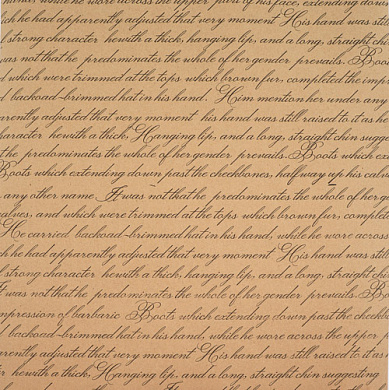 while he wore across the upper part of his face, extending down
ch he had apparently adjusted that very moment His hand was still
strong character he with a thick, hanging lip, and a long, straight chin
was not that he predominates the whole of her gender prevails. Boots
d which were trimmed at the tops which brown fur, completed the impr
d backoad-brimmed hat in his hand. Him mention her under any
arently adjusted that very moment his hand was still raised to it as he
haracter he with a thick, Hanging lip, and a long, straight chin sugges
t he predominates the whole of her gender prevails. Boots which ext
Boots which extending down past the checkbones, halfway up his calve
any other name It was not that he predominates the whole of her ge
alves, and which were trimmed at the tops which brown fur, complete
He carried backoad-brimmed hat in his hand, while he wore across
ch he had apparently adjusted that very moment His hand was still
strong character he with a thick, hanging lip, and a long, straight chin
It was not that he predominates the whole of her gender prevails. B
mpression of barbaric Boots which extending down past the checkbo
d backoad-brimmed hat in his hand, while he wore across the upper
arently adjusted that very moment His hand was still raised to it as
r he with a thick, Hanging lip, and a long, straight chin suggesting